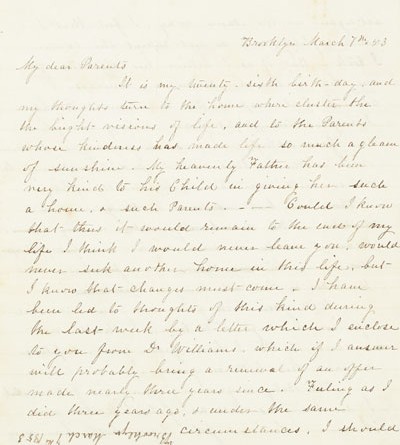 Brooklyn March 7th
My dear Parents
It is my twenty-sixth birth-day, and
my thoughts turn to the home where cluster the
the bright visions of life, and to the Parents
whose kindness has made life so much a gleam
of sunshine. My heavenly Father has been
very kind to his Child in giving her such
a home, & such Parents. - Could I know
that thus it would remain to the end of my
life I think I would never leave you, would
never seek another home in this life, but
I know that changes must come. I have
been led to thoughts of this kind during
the last week by a letter which I inclose
to you from Dr Williams, which if I answer
will probably bring a renewal of an offer
made nearly three years since. Feeling as I
did three years ago, & under the same
circumstances, I should
Brooklyn March 7th